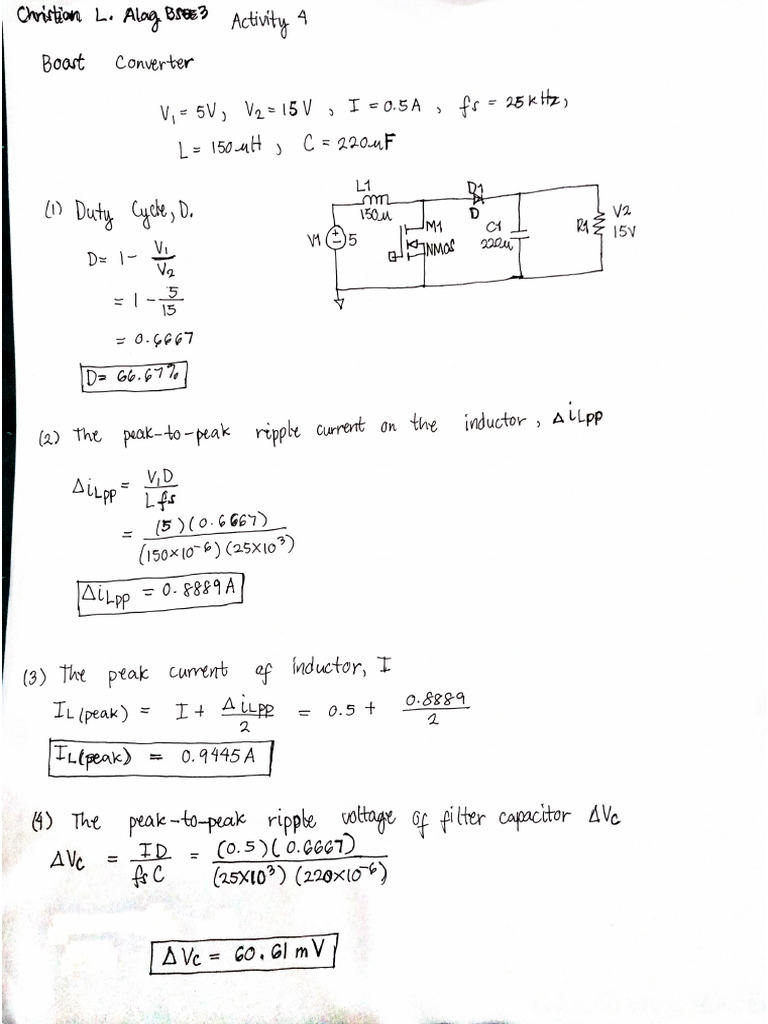 Christian L. Alag BSEE3 Activity 4
Boost Converter
V₁ = 5V, V₂ = 15V, I = 0.5A, fs = 25kHz,
L = 150uH, C = 220uF
(1) Duty Cycle, D.
D = 1 - V₁/V₂
= 1 - 5/15
= 0.6667
D = 66.67%
L1
150u
V1
5
M1
NMOS
D1
D
C1
220u
R1
V2
15V
(2) The peak-to-peak ripple current on the inductor, ΔiLpp
ΔiLpp = V₁D/Lfs
= (5)(0.6667)/(150×10⁻⁶)(25×10³)
ΔiLpp = 0.8889A
(3) The peak current of inductor, I
IL(peak) = I + ΔiLPP/2 = 0.5 + 0.8889/2
IL(peak) = 0.9445A
(4) The peak-to-peak ripple voltage of filter capacitor ΔVc
ΔVc = ID/fsC = (0.5)(0.6667)/(25×10³)(220×10⁻⁶)
ΔVc = 60.61 mV